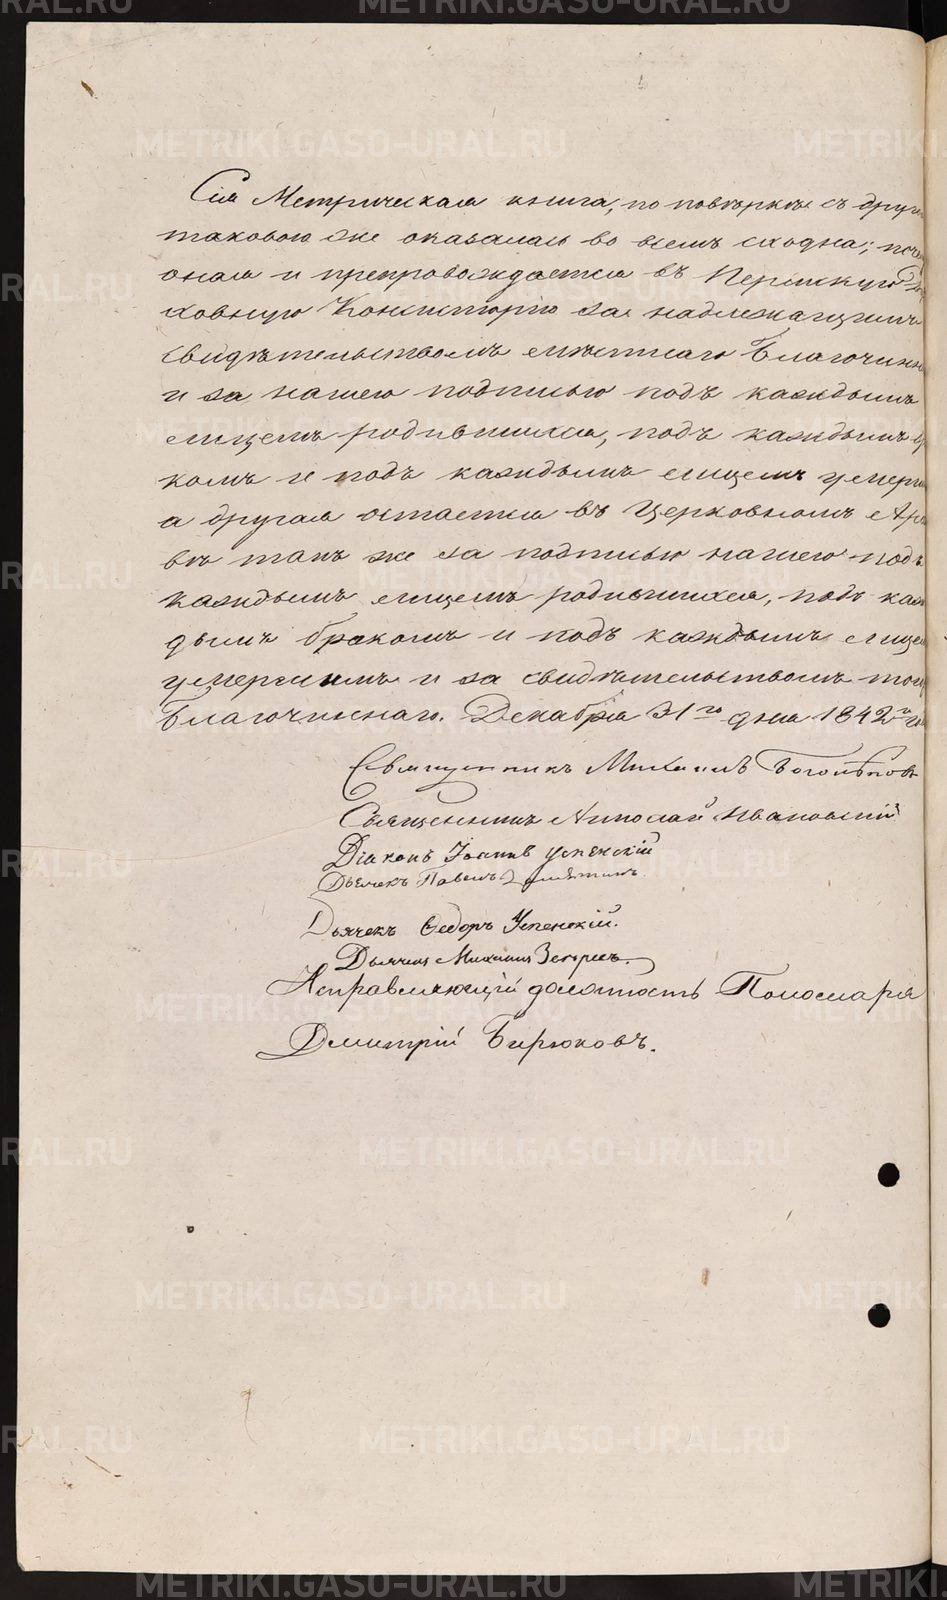 Сія Метрическая книга, по повѣркѣ съ друг
таковою же оказалась во всемъ сходна;
оная и препровождается въ Пермскую Ду
ховную Консисторію за надлежащимъ
свидѣтельствомъ мѣстнаго Благочинн
и за нашею подписью подъ каждымъ
лицемъ родившихся, подъ каждымъ бр
комъ и подъ каждымъ лицемъ умерш
а другая остается въ Церковномъ Архи
вѣ такъ же за подписью нашею подъ
каждымъ лицемъ родившихся, подъ каж
дымъ бракомъ и подъ каждымъ лицем
умершимъ и за свидѣтельствомъ того
Благочиннаго. Декабря 31го дня 1842го
Священникъ Михаилъ
Священникъ Николай Ивановскій
Діаконъ Іоаннъ Успенскій
Дьячекъ Павелъ
Дьячекъ Ѳедоръ Успенскій.
Дьячекъ Михаилъ
Исправляющій должность Пономаря
Дмитрій Бирюковъ.
METRIKI.GASO-URAL.RU